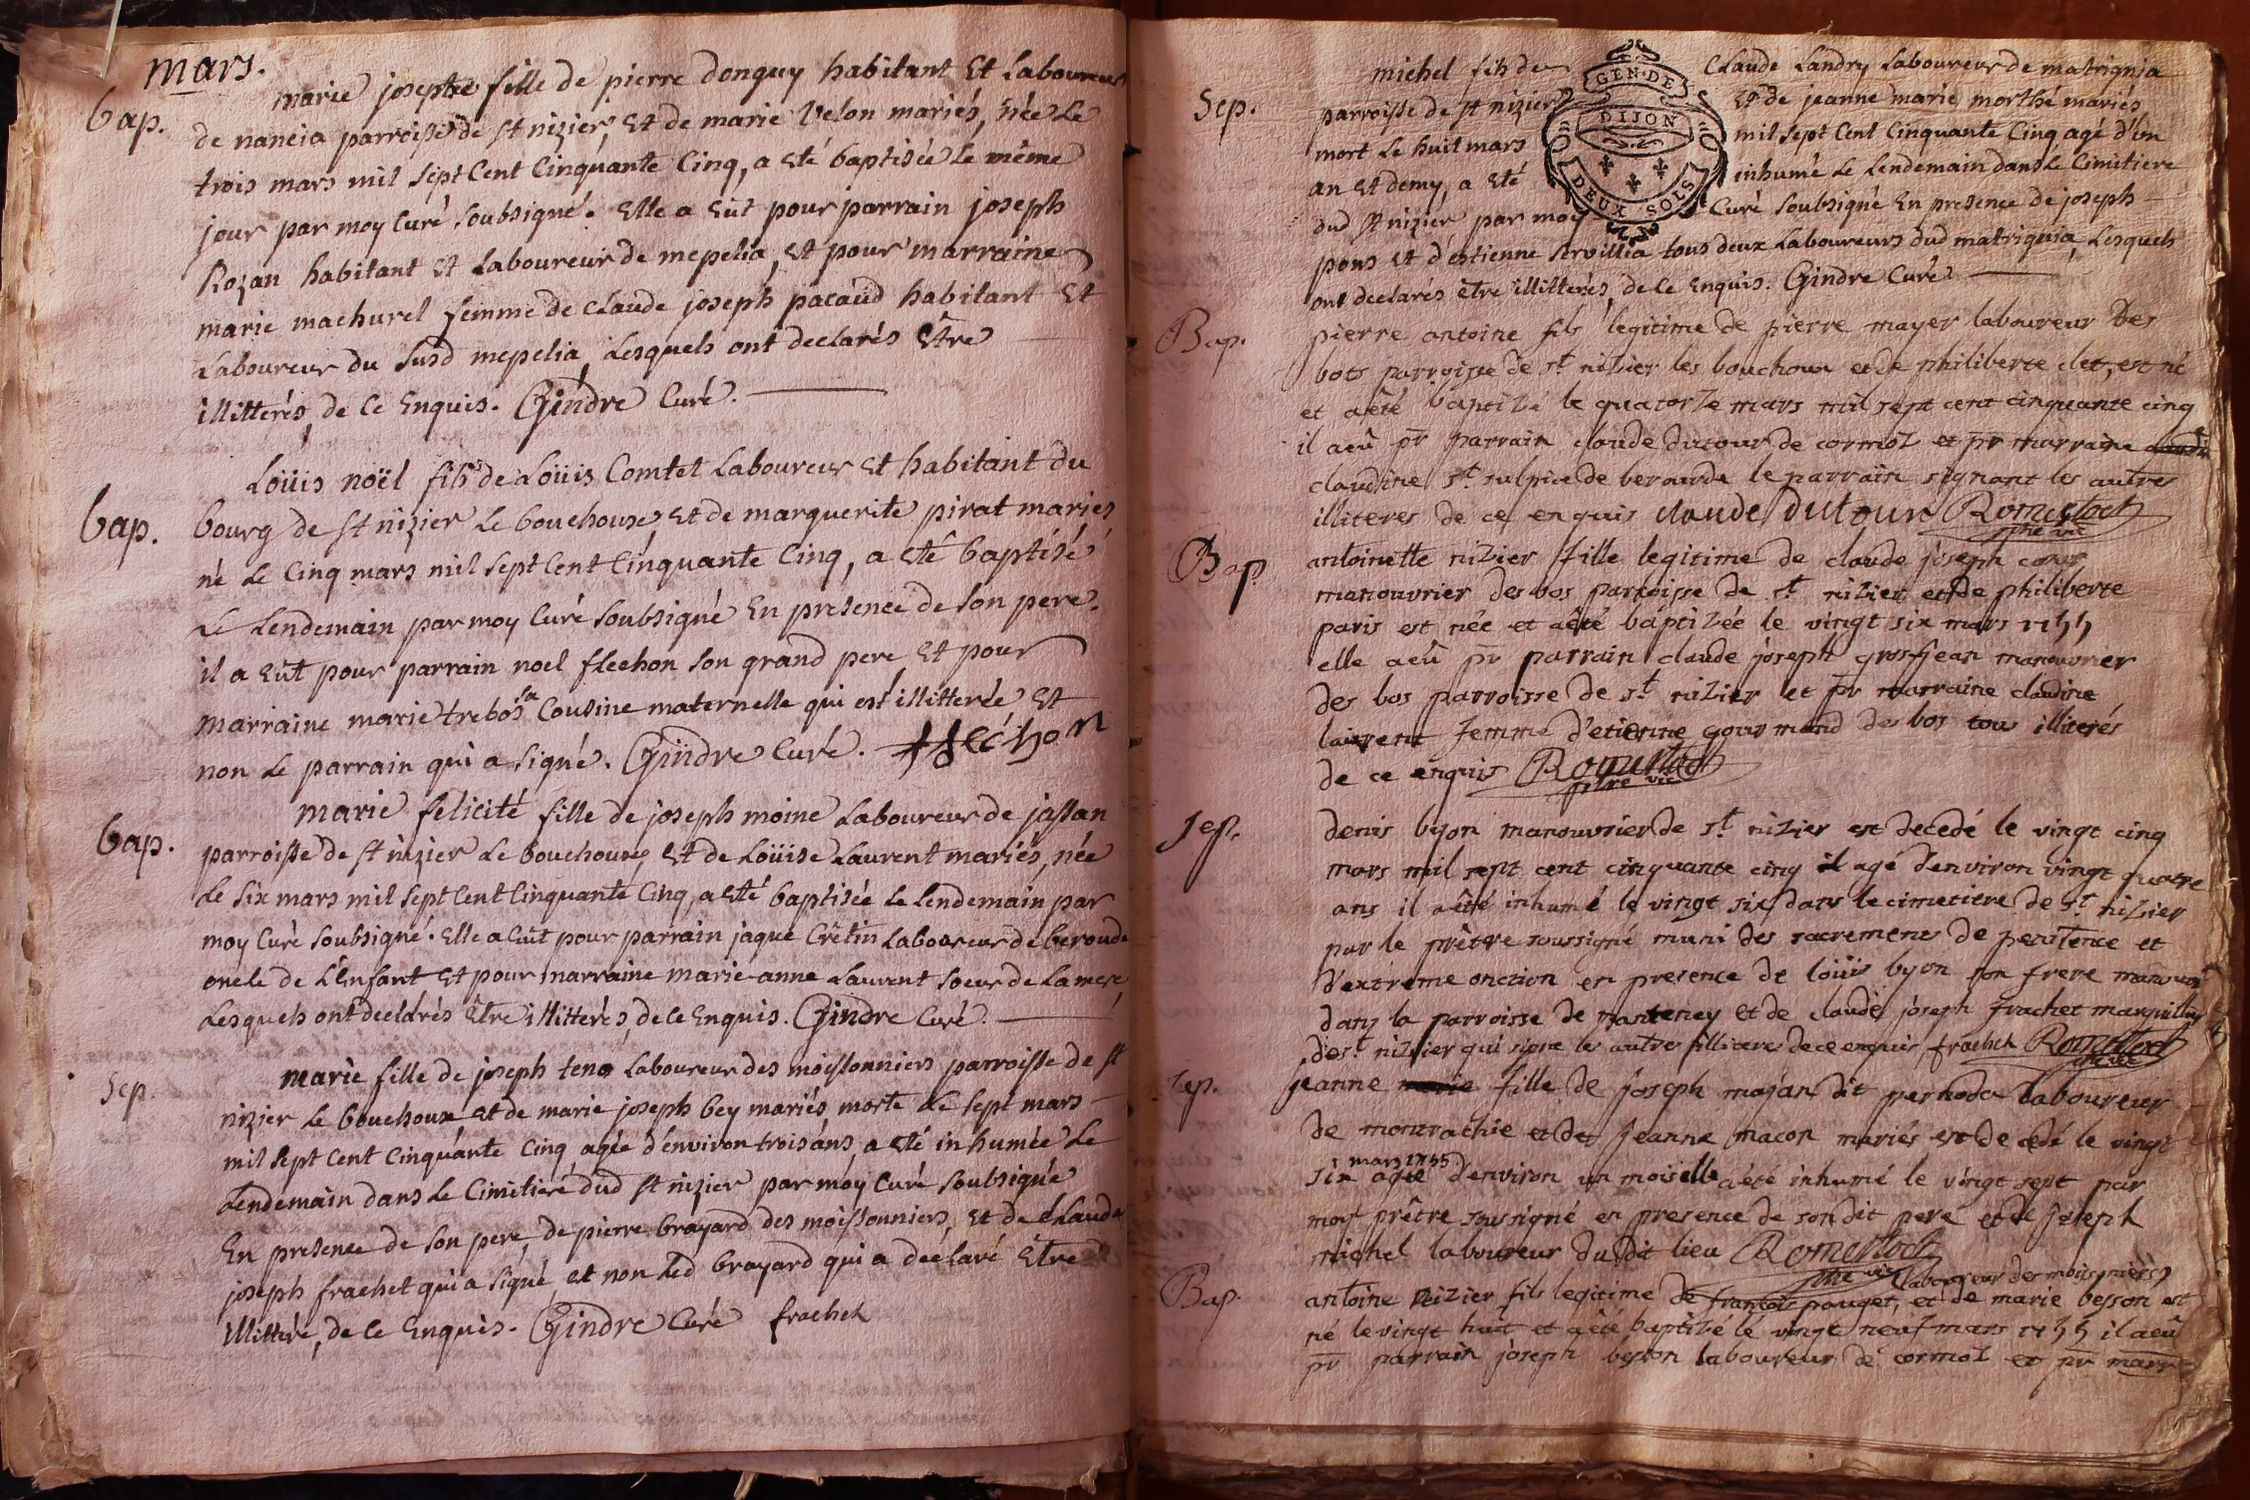 mars.
bap.
marie josephe fille de pierre donguy habitant Et Laboureur
de nancia parroisse de st nizier, Et de marie Velon mariés, née Le
trois mars mil sept Cent Cinquante Cinq, a Eté baptisée Le même
jour par moy Curé soubsigné. Elle a Eüt pour parrain joseph
Rozan habitant Et Laboureur de mepelia, Et pour marraine
marie machurel femme de claude joseph pacaud habitant Et
Laboureur du susd mepelia, Lesquels ont declarés Etre
illitterés, de Ce Enquis. Gindre Curé.
bap.
Loüis noël fils de Loüis Comtet Laboureur Et habitant du
bourg de st nizier Le bouchoux Et de marguerite pirat mariés
né Le Cinq mars mil sept Cent Cinquante Cinq, a Eté baptisé
Le Lendemain par moy Curé soubsigné En presence de son pere.
il a Eüt pour parrain noel flechon son grand pere Et pour
marraine marie trebos sa Cousine maternelle qui est illitterée Et
non Le parrain qui a signé. Gindre Curé. fléchon
bap.
marie felicité fille de joseph moine Laboureur de jassan
parroisse de st nizier Le bouchoux Et de Loüise Laurent mariés, née
Le six mars mil sept Cent Cinquante Cinq, a Eté baptisée Le Lendemain par
moy Curé soubsigné. Elle a Eüt pour parrain jaque Crêtin Laboureur de beroude
oncle de L'Enfant, Et pour marraine marie anne Laurent soeur de La mere,
Lesquels ont declarés Etre illitterés, de Ce Enquis. Gindre Curé.
Sep.
marie fille de joseph teno Laboureur des moissonniers parroisse de st
nizier Le bouchoux Et de marie joseph bey mariés morte Le sept mars
mil sept Cent Cinquante Cinq agée d'environ trois ans a Eté inhumée Le
Lendemain dans Le Cimitiere dud st nizier par moy Curé soubsigné
En presence de son pere, de pierre brayard des moissonniers, Et de claude
joseph frachet qui a signé, et non Led brayard qui a declaré Etre
illitteré, de Ce Enquis. Gindre Curé frachet
GEN. DE
DIJON
DEUX SOLS
Sep.
michel fils de Claude Landry Laboureur de matrignia
parroisse de st nizier Et de jeanne marie morthé mariés
mort Le huit mars mil sept Cent Cinquante Cinq agé d'un
an Et demy, a Eté inhumé Le Lendemain dans Le Cimitiere
dud st nizier par moy Curé soubsigné En presence de joseph
pons Et d'estienne servillia tous deux Laboureurs dud matriguia, Lesquels
ont declarés être illitterés, de Ce Enquis. Gindre Curé
Bap.
pierre antoine fils legitime de pierre mayer laboureur des
bots parroisse de st nizier les bouchoux et de philiberte clet, est né
et aêté baptizé le quatorze mars mil sept cent cinquante cinq
il aeû pr parrain claude dutour de cormoz et pr marraine
claudine st sulpice de beroude le parrain signant les autres
illiteres de ce enquis claude dutour Romestoct
ptre vic
Bap
antoinette nizier fille legitime de claude joseph
manouvrier des bos parroisse de st nizier et de philiberte
paris est née et aêté baptizée le vingt six mars 1755
elle aeû pr parrain claude joseph grosfjean manouvrier
des bos parroisse de st nizier et pr marraine claudine
laurent femme d'etienne gourmand des bos tous illiterés
de ce enquis Romestoct
ptre vic
Sep.
denis byon manouvrier de st nizier est decedé le vingt cinq
mars mil sept cent cinquante cinq agé d'environ vingt quatre
ans il aêté inhumé le vingt six dans le cimetiere de st nizier
par le prêtre soussigné muni des sacremens de penitence et
d'extreme onction en presence de loüis byon son frere
dans la parroisse de manteney et de claude joseph frachet
de st nizier qui signe les autres illiteres de ce enquis frachet Romestoct
ptre vic
Sep.
jeanne marie fille de joseph mojan dit laboureur
de montrachie et de jeanne macon mariés est decedé le vingt
six mars 1755 agée d'environ un mois elle aêté inhumé le vingt sept par
moy prêtre soussigné en presence de son dit pere et de joseph
michel laboureur du dit lieu Romestoct
ptre vic
Bap.
laboureur des moissonniers
antoine nizier fils legitime de francois pauget, et de marie besson est
né le vingt huit et aêté baptizé le vingt neuf mars 1755 il aeû
pr parrain joseph besson laboureur de cormoz et pr marr